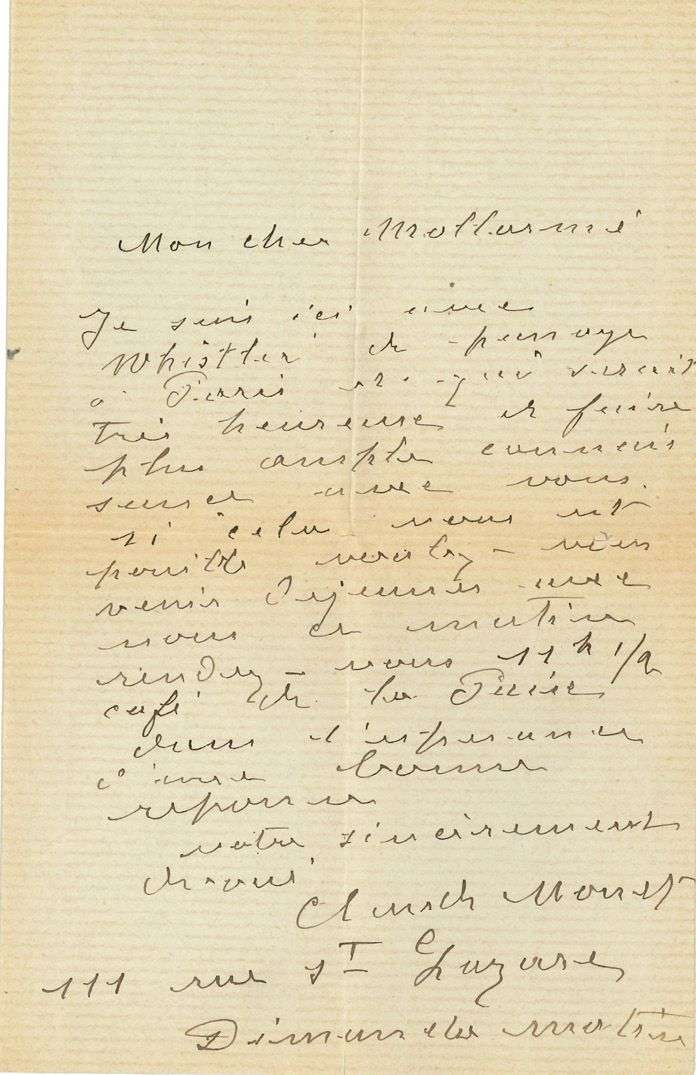 Mon cher Mallarmé
Je suis ici avec
Whistler de passage
à Paris et qui serait
très heureux de faire
plus ample connais
sance avec vous.
si cela vous est
possible voulez-vous
venir déjeuner avec
nous ce matin
rendez-vous 11h 1/2
café de la Paix
dans l'espérance
d'une bonne
reponse
votre sincèrement
dévoué
Claude Monet
111 rue St Lazare
Dimanche matin